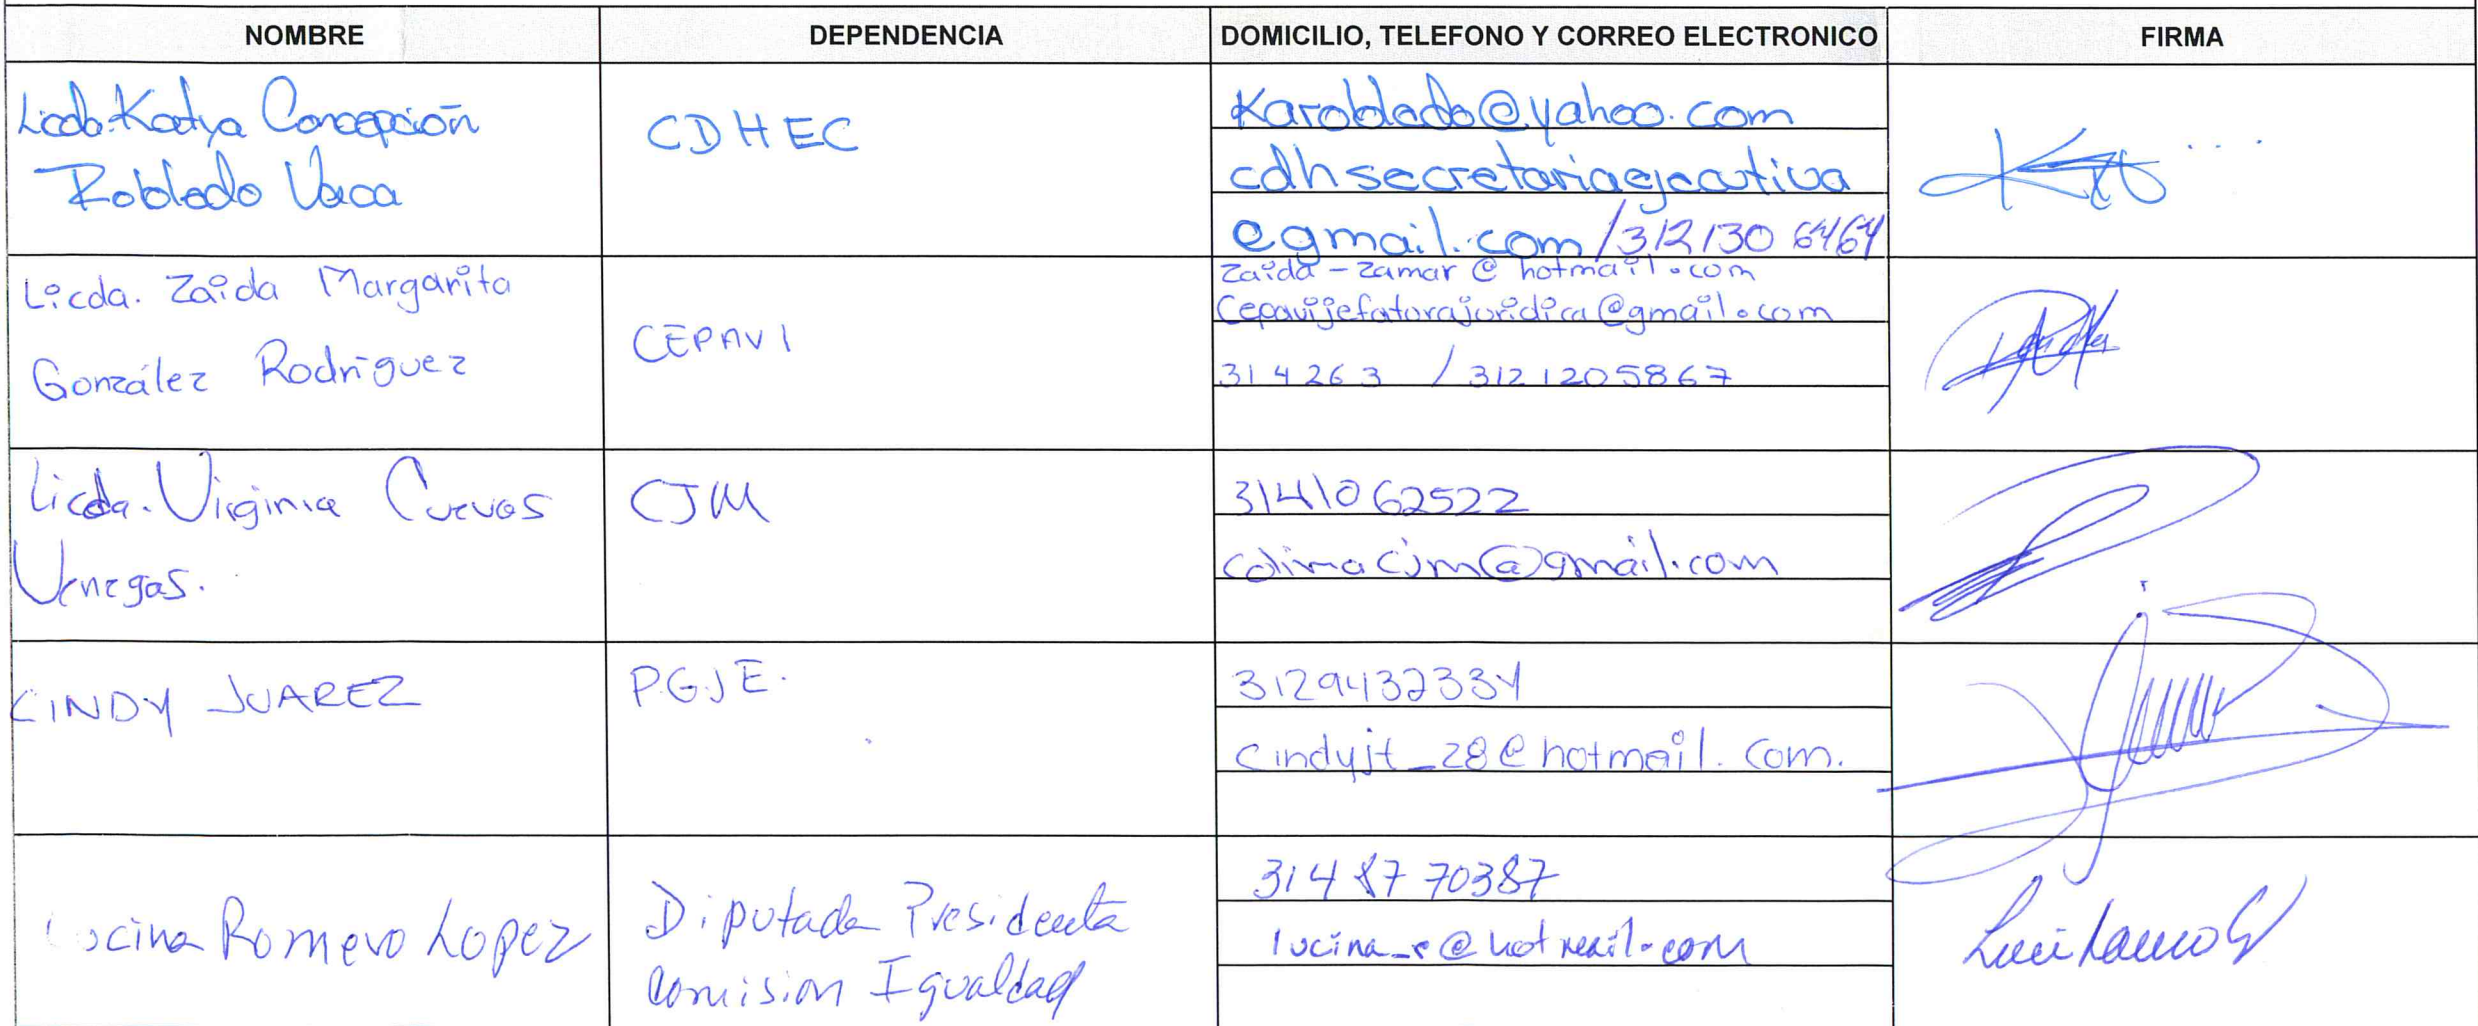 NOMBRE DEPENDENCIA DOMICILIO, TELEFONO Y CORREO ELECTRONICO FIRMA
Licda. Katya Concepción
Robledo Vaca
CDHEC
Karobledo@yahoo.com
cdhsecretariaejecutiva
@gmail.com /312 130 6464
Licda. Zaida Margarita
González Rodríguez
CEPAVI
Zaida-zamar@hotmail.com
Cepavijefaturajuridica@gmail.com
314263 / 3121205867
Licda. Virginia Cuevas
Venegas.
CJM
3141062522
colimacjm@gmail.com
CINDY JUAREZ
P.G.J.E.
3129432334
cindyjt_28@hotmail.com.
Lucina Romero Lopez
Diputada Presidenta
Comision Igualdad
314 87 70387
lucina_r@hotmail.com